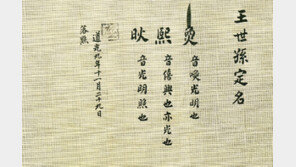 王世孫定名
奐
音喚光明也
熙
音僖興也亦光也
音光明照也
道光九年十一月二十九日
落點